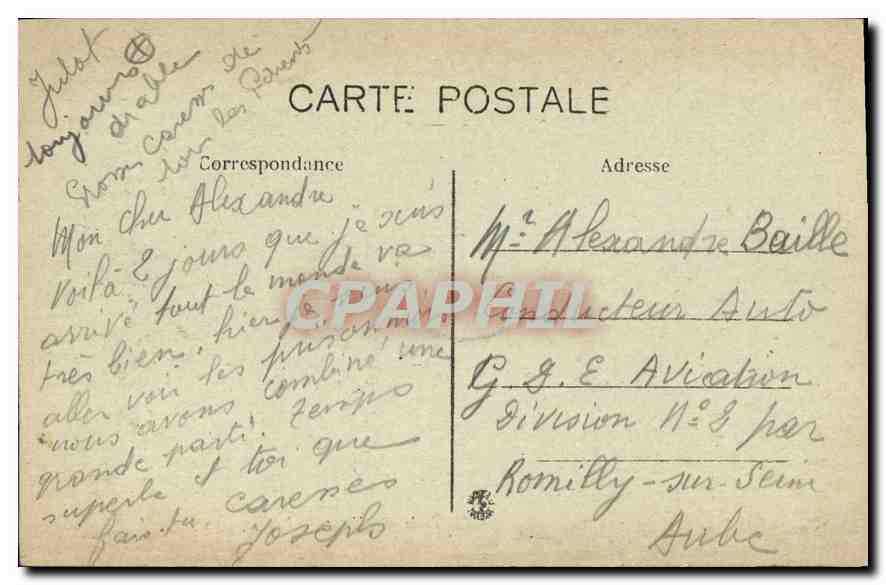 Julot
toujours
diable
Grosses Caresses de
tous les Parents
CARTE POSTALE
Correspondance
Adresse
Mon cher Alexandre
Voilà 2 jours que je suis
arrivé tout le monde va
très bien, hier je suis
aller voir les prisonniers
nous avons combiné une
grande parti. Temps
superbe et toi que
fais-tu Caresses
Joseph
Mr Alexandre Baille
Conducteur Auto
G D E Aviation
Division No 2 par
Romilly-sur-Seine
Aube
CPAPHIL